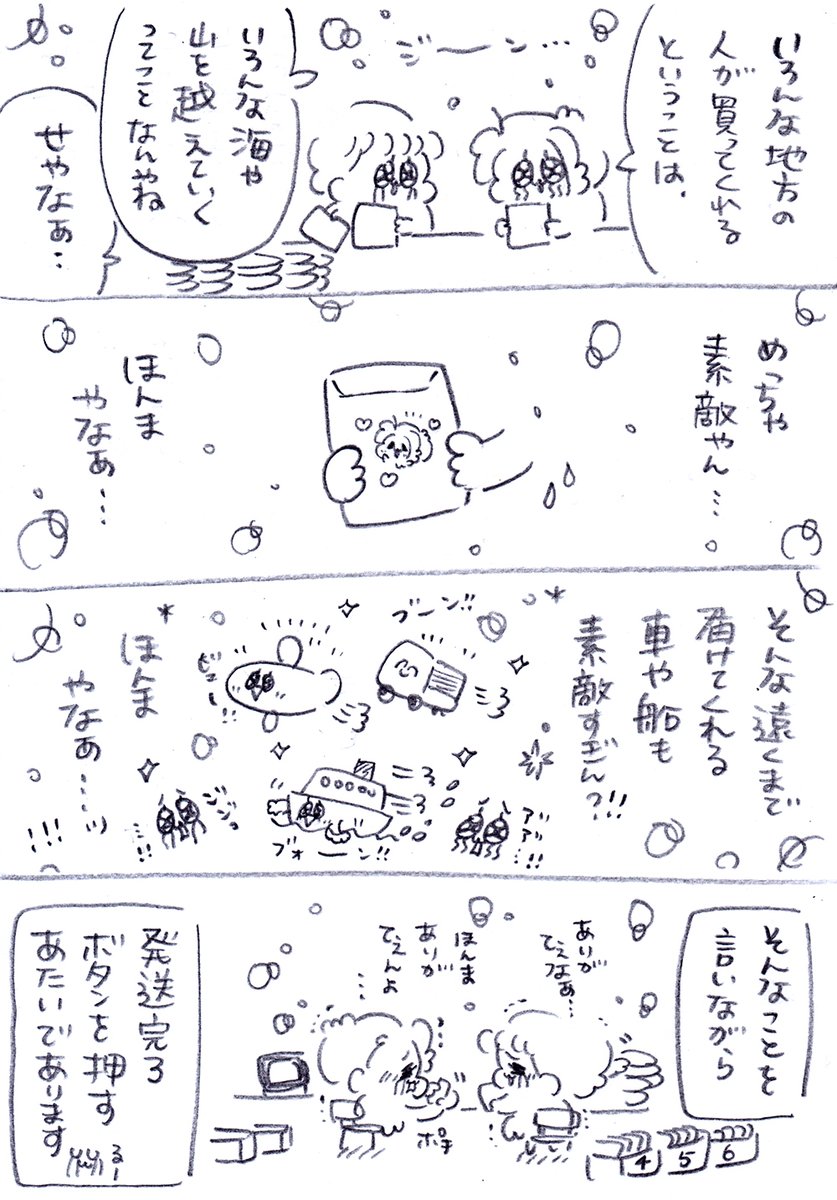 いろんな地方の
人が買ってくれる
ということは、
ジーン…
いろんな海や
山を越えていく
ってことなんやね
せやなぁ…
めっちゃ
素敵やん…
ほんま
やなぁ…
そんな遠くまで
届けてくれる
車や船も
素敵すぎん?!!
ブーン!!
ビュー!!
ブォーン!!
ほんま
やなぁ……
そんなことを
言いながら
ありが
てぇなぁ…
ほんま
ありが
てぇんよ
…
ポチ
4
5
6
発送完了
ボタンを押す
あたいであります